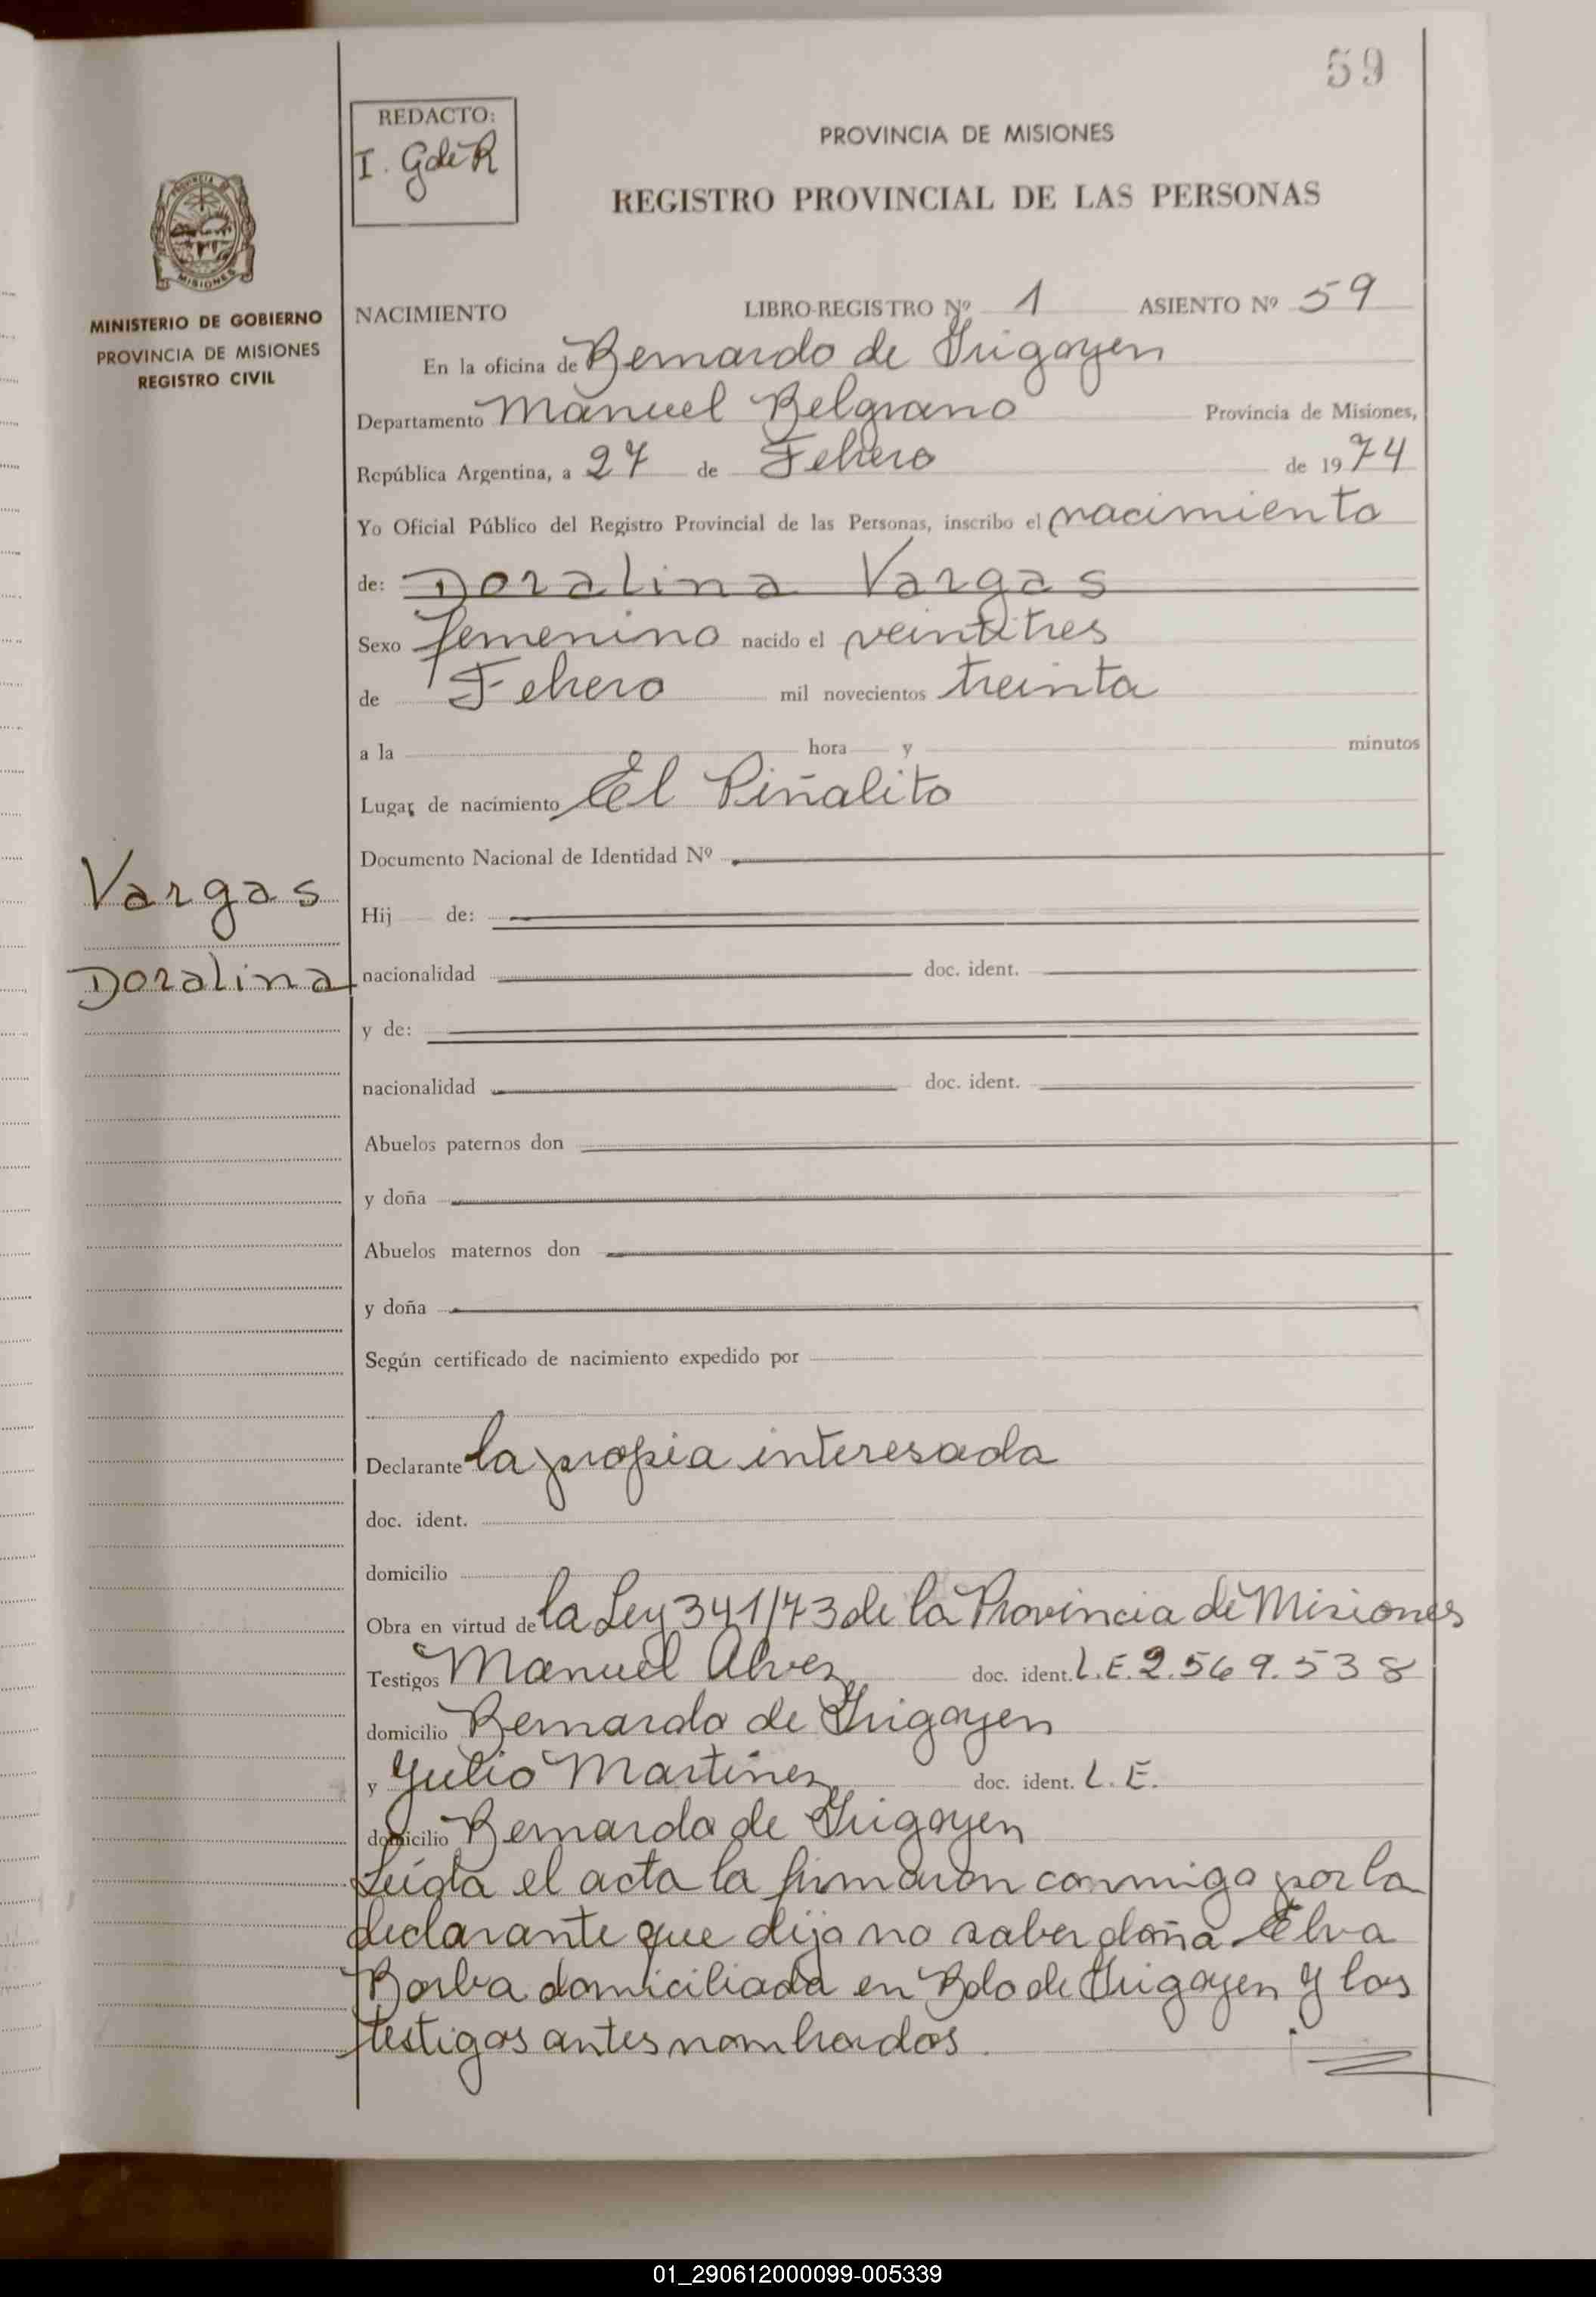 59
REDACTO:
I. GdeR
PROVINCIA DE MISIONES
REGISTRO PROVINCIAL DE LAS PERSONAS
PROVINCIA DE
MISIONES
MINISTERIO DE GOBIERNO
PROVINCIA DE MISIONES
REGISTRO CIVIL
NACIMIENTO LIBRO-REGISTRO Nº 1 ASIENTO Nº 59
En la oficina de Bernardo de Irigoyen
Departamento Manuel Belgrano Provincia de Misiones,
República Argentina, a 27 de Febrero de 1974
Yo Oficial Público del Registro Provincial de las Personas, inscribo el nacimiento
de: Doralina Vargas
Sexo femenino nacido el veintitres
de Febrero mil novecientos treinta
a la hora y minutos
Lugar de nacimiento El Piñalito
Documento Nacional de Identidad Nº
Vargas
Hij de:
Doralina
nacionalidad doc. ident.
y de:
nacionalidad doc. ident.
Abuelos paternos don
y doña
Abuelos maternos don
y doña
Según certificado de nacimiento expedido por
Declarante la propia interesada
doc. ident.
domicilio
Obra en virtud de la Ley 341/73 de la Provincia de Misiones
Testigos Manuel Alvez doc. ident. L.E. 2.569.538
domicilio Bernardo de Irigoyen
y Julio Martinez doc. ident. L.E.
domicilio Bernardo de Irigoyen
Leída el acta la firmaron conmigo por la
declarante que dijo no saber doña Elva
Borba domiciliada en Bdo de Irigoyen y los
testigos antes nombrados.
01_290612000099-005339